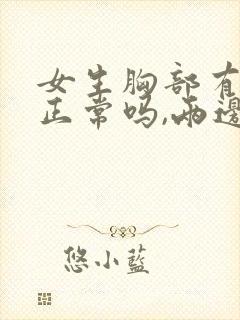 女生胸部有
正常吗,两邊
悠小藍